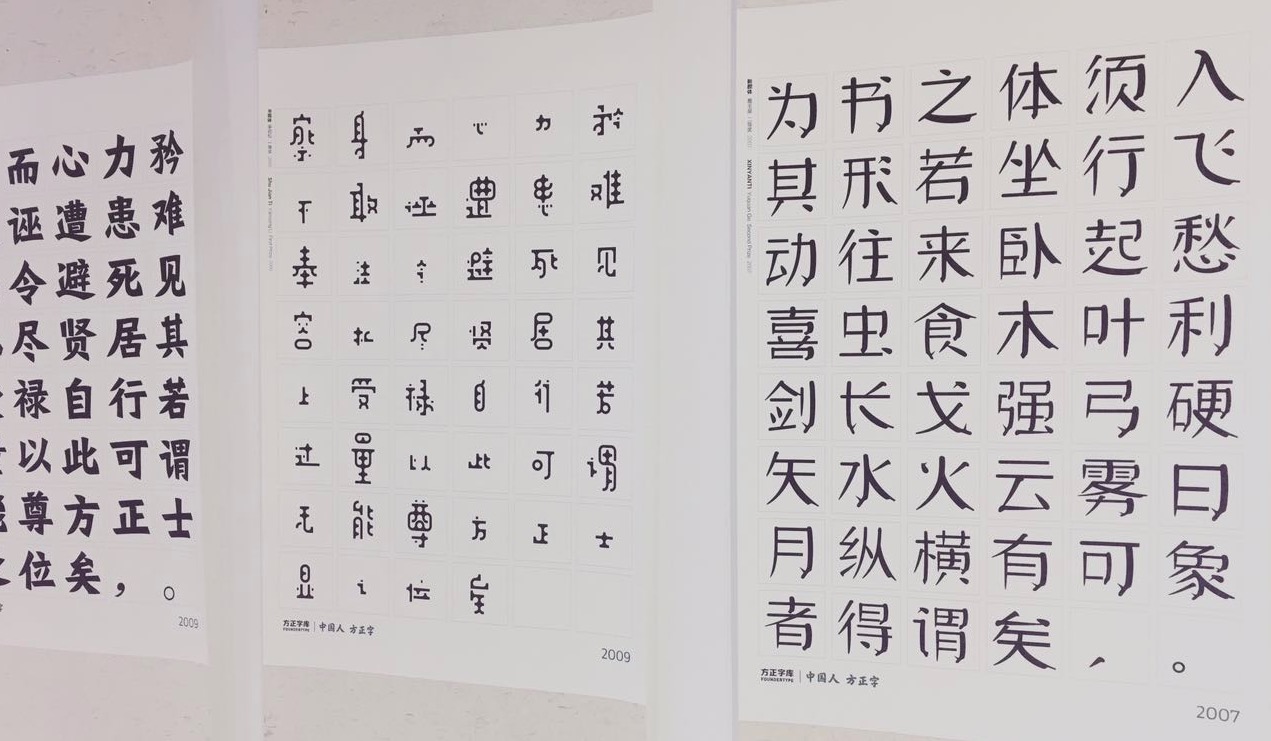 而心力矜
诬遭患难
令避死见
尽贤居其
禄自行若
以此可谓
尊方正士
位矣，。
2009
察身而心力矜
不敢诬遭患难
奉法令避死见
容私尽贤居其
上受禄自行若
过量以此可谓
无能尊方正士
显之位矣
方正字库 FOUNDERTYPE | 中国人 方正字
2009
XINYANTI
为书之体须入
其形若坐行飞
动往来卧起愁
喜虫食木叶利
剑长戈强弓硬
矢水火云雾曰
月纵横有可象
者得谓矣，。
方正字库 FOUNDERTYPE | 中国人 方正字
2007